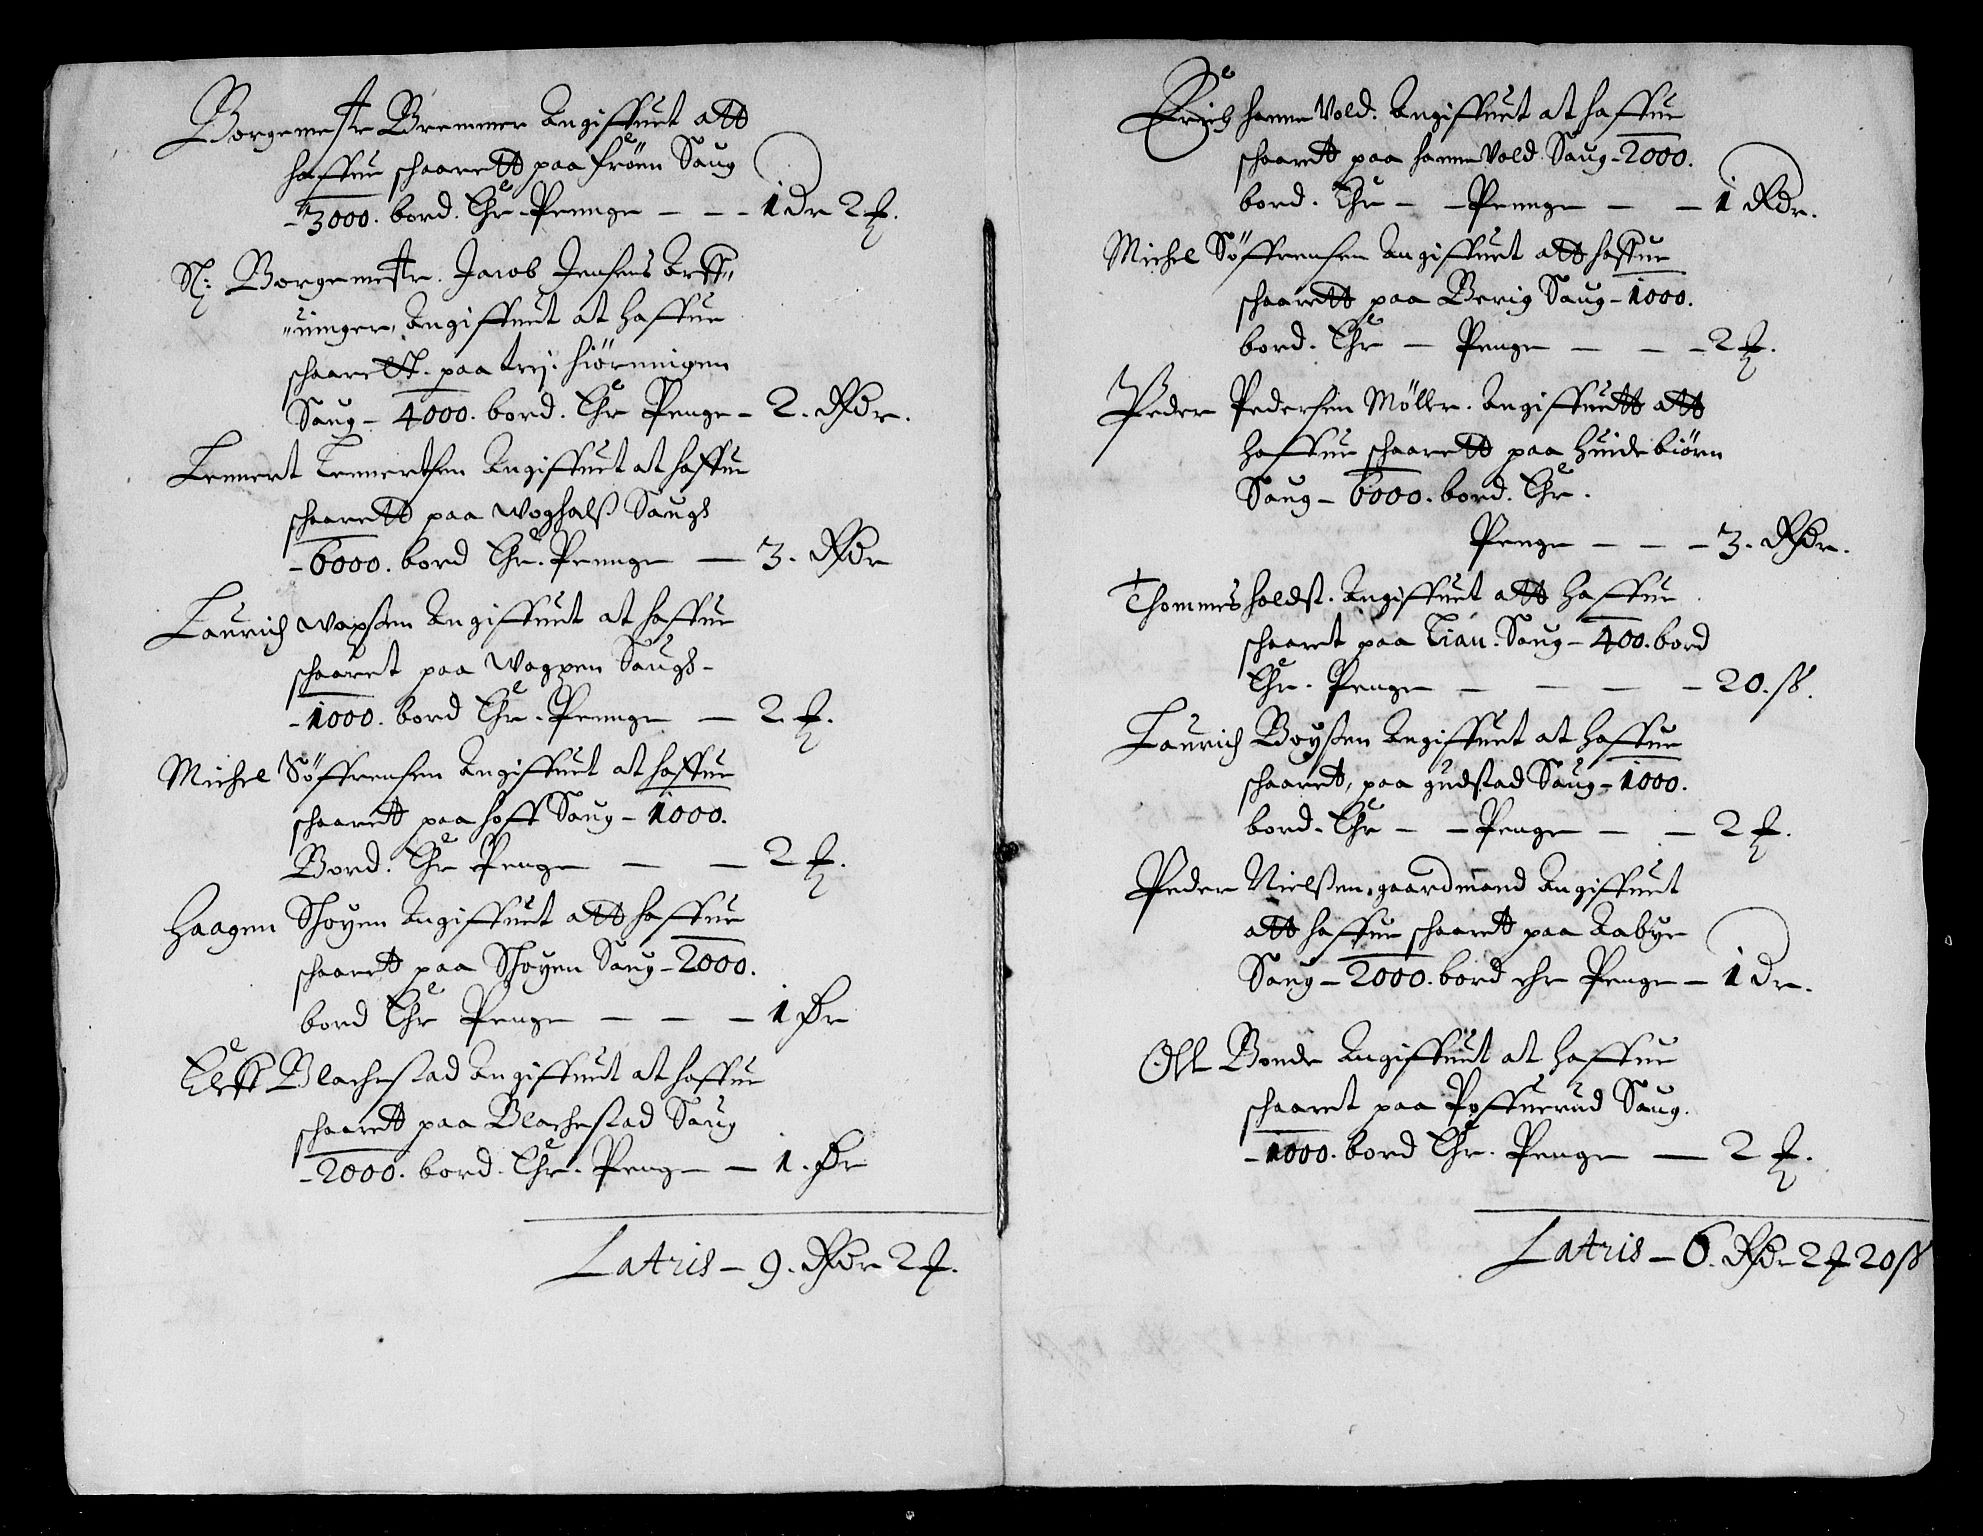 Borgemestr Bremmer Angiffuet att
haffue schaarett paa fröen Saug
-3000. bord. Ehr Pennge - - - 1 dr 2 ƒ.
Sl: Borgemestr. Jacob Jensens Arff„
„uinger, Angiffuet at haffue
schaarett. paa trij. hiörnnigen
Saug - 4000. bord. Ehr Penge - 2. Rdr.
Lennert Lennertsen Angiffuet at haffue
schaarett paa Woghalß Saugs
- 6000. bord Ehr. Pennge - 3. Rdr
Laurich Wapßen Angiffuet at haffue
schaaret paa Wagpen Saugs -
- 1000. bord Ehr. Pennge - 2. ƒ.
Michel Söffrensen Angiffuet at haffue
schaarett paa hoff Saug - 1000.
Bord. Ehr Penge - - 2 ƒ.
Haagen Shoyen Angiffuet att haffue
schaarett paa Shoyen Saug - 2000.
bord Ehr Penge - - - 1 dr
Eleff Blachestad Angiffuet at haffue
schaarett paa Blachestad Saug
- 2000. bord. Ehr. Penge - 1. dr
Latris - 9. Rdr 2 ƒ.
Erich hanneVold. Angiffuet at haffue
schaarett paa hanneVold Saug - 2000.
bord. Ehr - - Pennge - - 1 Rdr.
Michel Söffrensen Angiffuet att haffue
schaarett paa Berig Saug - 1000.
bord. Ehr - Penge - - - 2 ƒ.
Peder Pedersen Möller. Angiffuett att
haffue schaarett paa Huidebiörn
Saug - 6000. bord. Ehr.
Penge - - - 3. Rdr.
Thommes holdst. Angiffuet att haffue
schaaret paa Lian. Saug - 400. bord
Ehr. Penge - - - - 20. ß.
Laurich Boyßen Angiffuet at haffue
schaarett, paa gudstad Saug - 1000.
bord. Ehr - - Penge - - 2 ƒ.
Peder Nielßen, gaardmand Angiffuet
att haffue schaarett paa Aabye
Saug - 2000. bord ehr Penge - 1 dr.
Oll Bonde Angiffuet at haffue
schaaret paa Poffuerud Saug.
- 1000. bord Ehr. Penge - 2 ƒ.
Latris - 6. Rdr 2 ƒ 20 ß